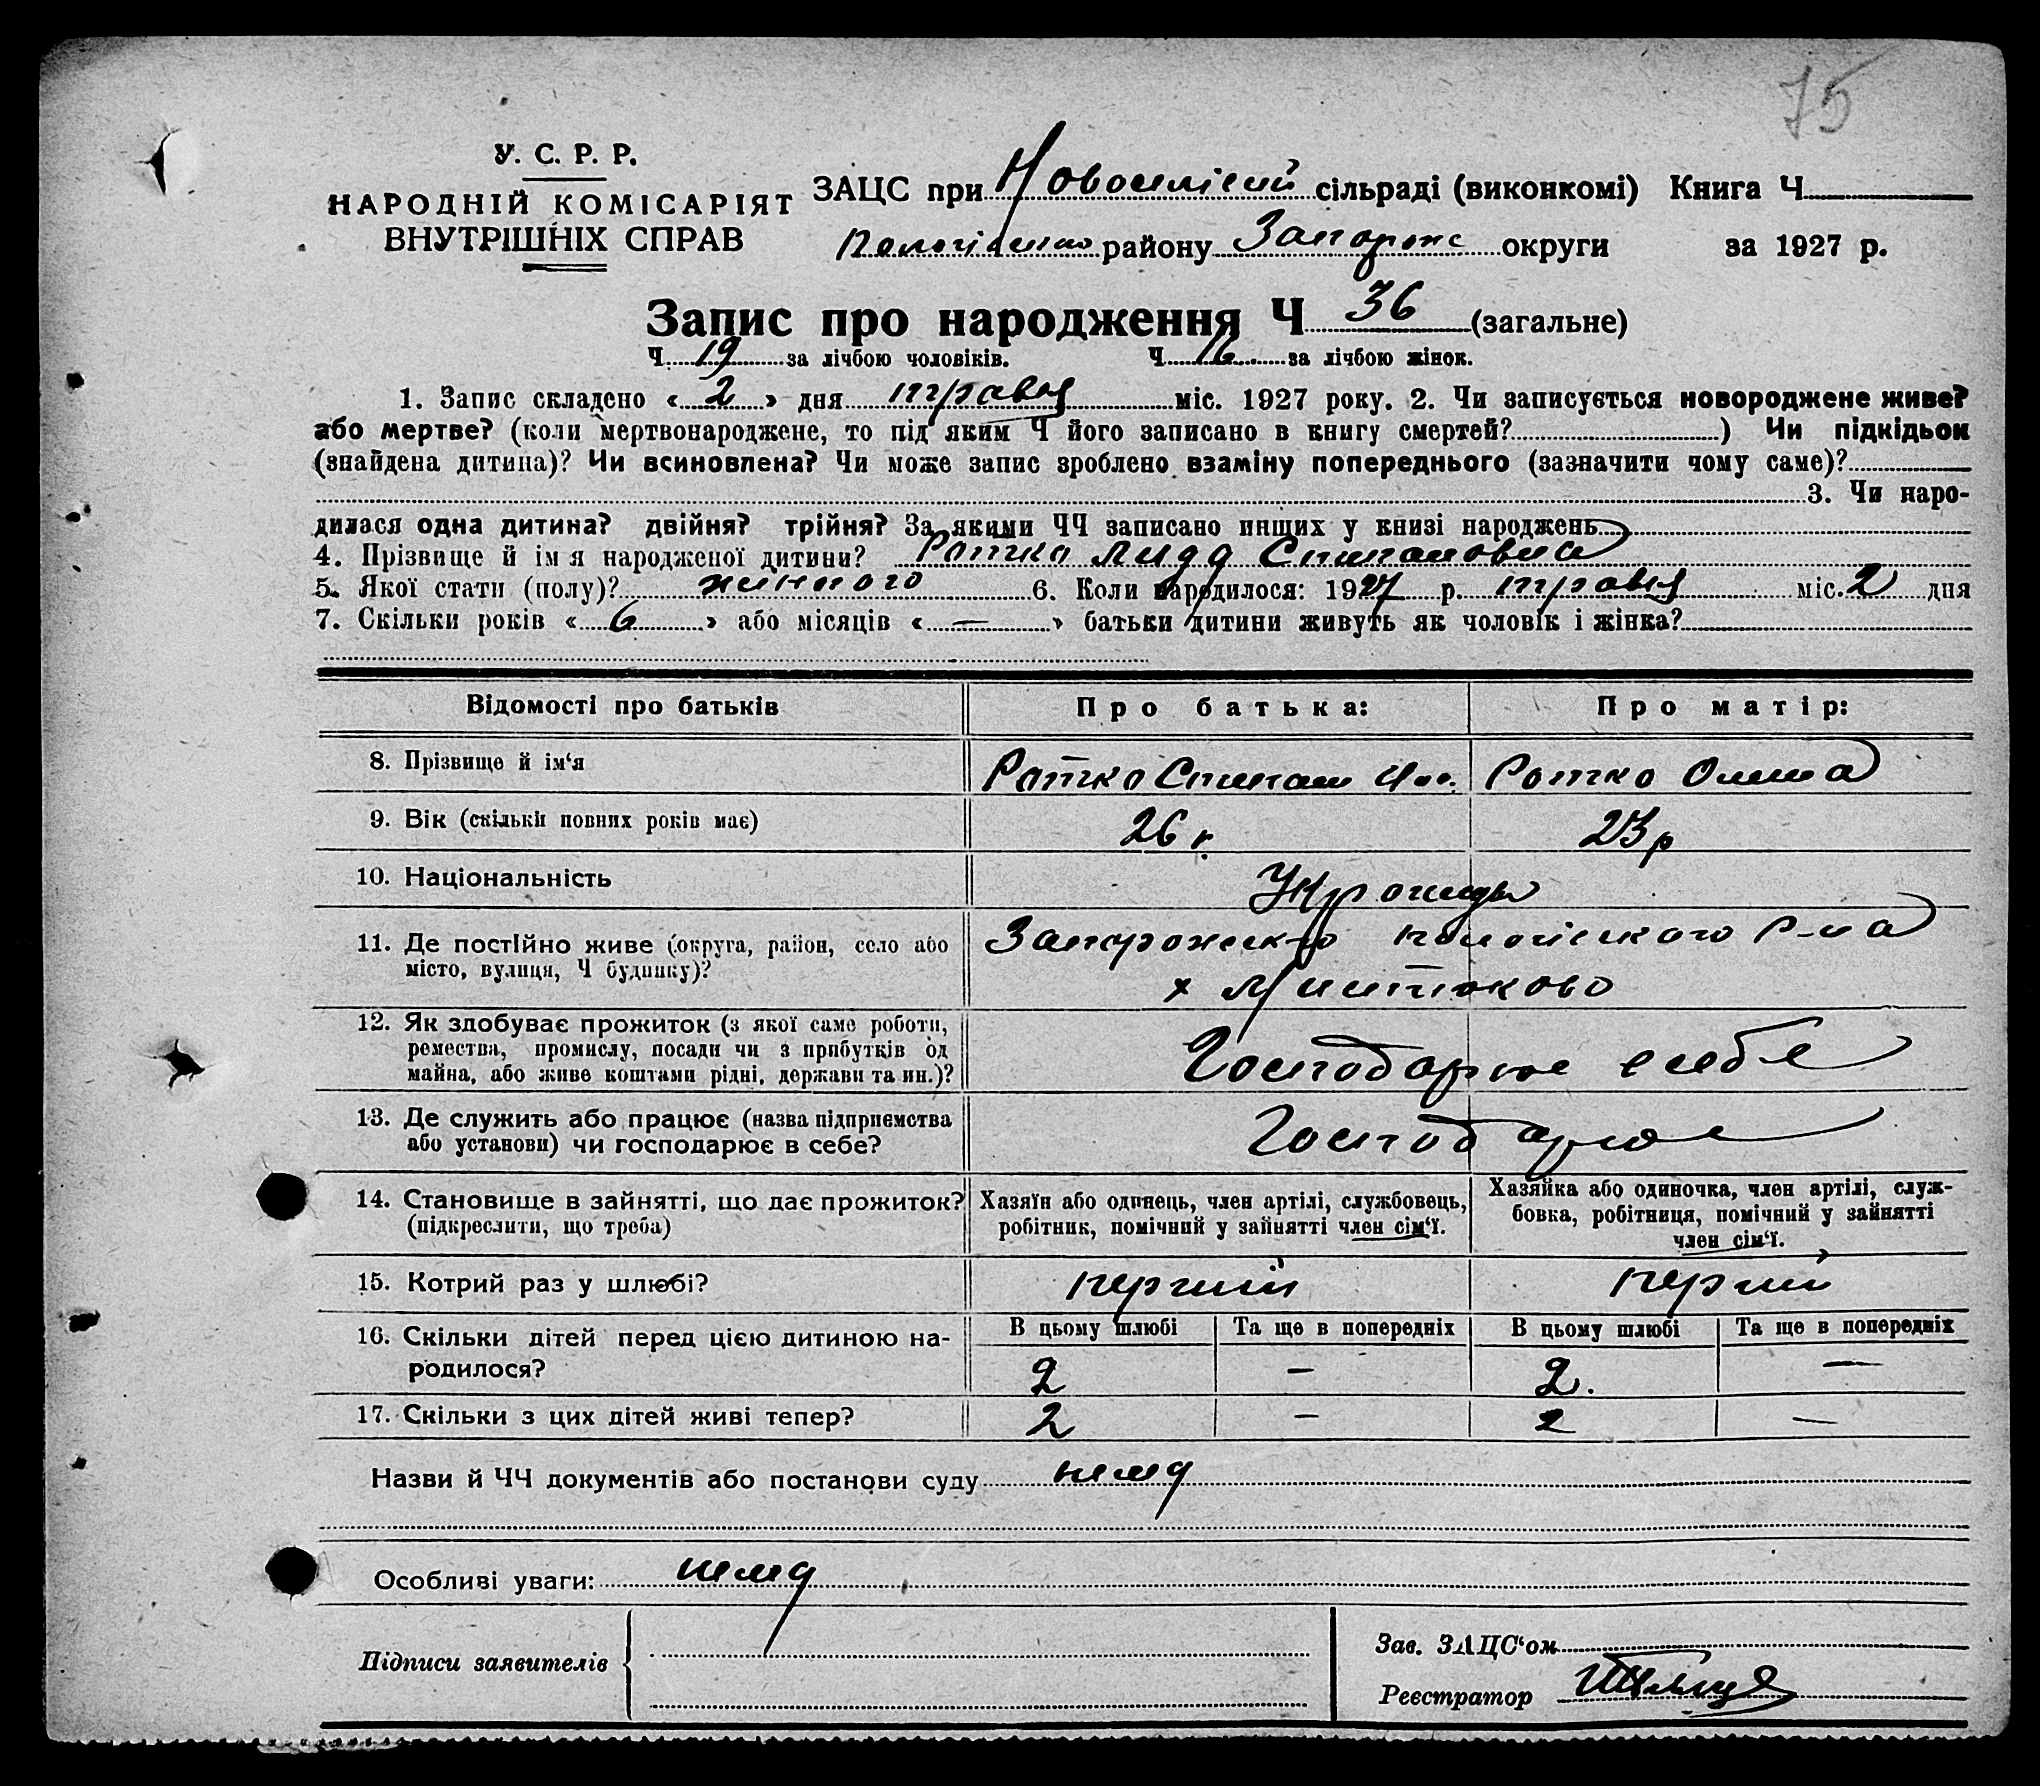 75
У. С. Р. Р.
НАРОДНІЙ КОМІСАРІЯТ
ВНУТРІШНІХ СПРАВ
ЗАЦС при сільраді (виконкомі) Книга Ч
району Запоріж округи за 1927 р.
Запис про народження Ч 36 (загальне)
Ч. 19 за лічбою чоловіків. Ч 16 за лічбою жінок.
1. Запис складено « 2 » дня травня міс. 1927 року. 2. Чи записується новороджене живе?
або мертве? (коли мертвонароджене, то під яким Ч його записано в книгу смертей? ) Чи підкідьок
(знайдена дитина)? Чи всиновлена? Чи може запис зроблено взаміну попереднього (зазначити чому саме)?
3. Чи наро-
дилася одна дитина? двійня? трійня? За якими ЧЧ записано инших у книзі народжень
4. Прізвище й ім я народженої дитини? Ротко Лида Степановна
5. Якої стати (полу)? жиночого 6. Коли народилося: 1927 р. травня міс. 2 дня
7. Скільки років « 6 » або місяців « — » батьки дитини живуть як чоловік і жінка?
Відомості про батьків Про батька: Про матір:
8. Прізвище й ім‘я Ротко Степан Ротко
9. Вік (скільки повних років має) 26 р. 23 р
10. Національність Українцы
11. Де постійно живе (округа, район, село або
місто, вулиця, Ч будинку)?
Пологівского Р-на
х
12. Як здобуває прожиток (з якої саме роботи,
ремества, промислу, посади чи з прибутків од
майна, або живе коштами рідні, держави та ин.)?
Господарює в себе
13. Де служить або працює (назва підприємства
або установи) чи господарює в себе?
Господарює
14. Становище в зайнятті, що дає прожиток?
(підкреслити, що треба)
Хазяїн або одинець, член артілі, службовець,
робітник, помічний у зайнятті член сім‘ї.
Хазяйка або одиночка, член артілі, служ-
бовка, робітниця, помічний у зайнятті
член сім‘ї.
15. Котрий раз у шлюбі? перший перший
16. Скільки дітей перед цією дитиною на-
родилося?
В цьому шлюбі Та ще в попередніх В цьому шлюбі Та ще в попередніх
2 — 2. —
17. Скільки з цих дітей живі тепер? 2 — 2 —
Назви й ЧЧ документів або постанови суду нема
Особливі уваги: нема
Підписи заявителів
Зав. ЗАЦС‘ом
Реєстратор